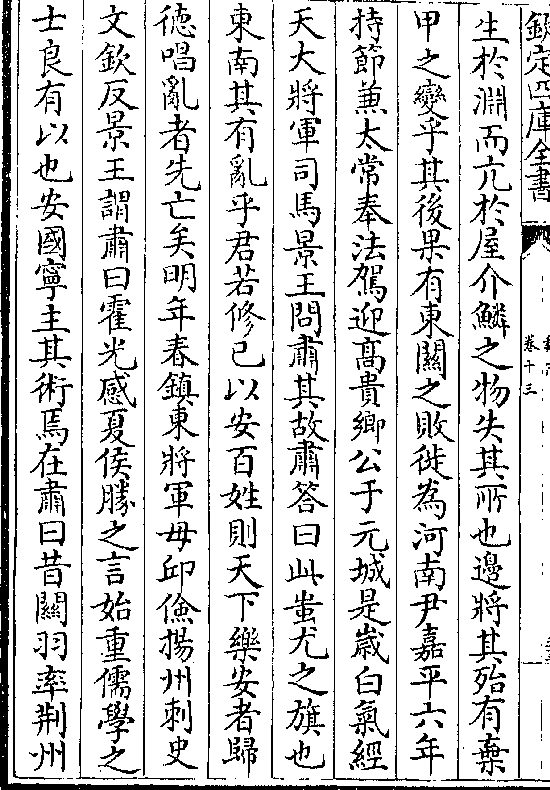 欽定四庫全書
卷十三
生於淵而亢於屋介鱗之物失其所也邊將其殆有棄
甲之變乎其後果有東關之敗徙為河南尹嘉平六年
持節兼太常奉法駕迎髙貴鄉公于元城是歲白氣經
天大將軍司馬景王問肅其故肅答曰此蚩尤之旗也
東南其有亂乎君若修己以安百姓則天下樂安者歸
徳唱亂者先亡矣明年春鎮東將軍毋邱儉揚州刺史
文欽反景王謂肅曰霍光感夏侯勝之言始重儒學之
士良有以也安國寧主其術焉在肅曰昔關羽率荆州